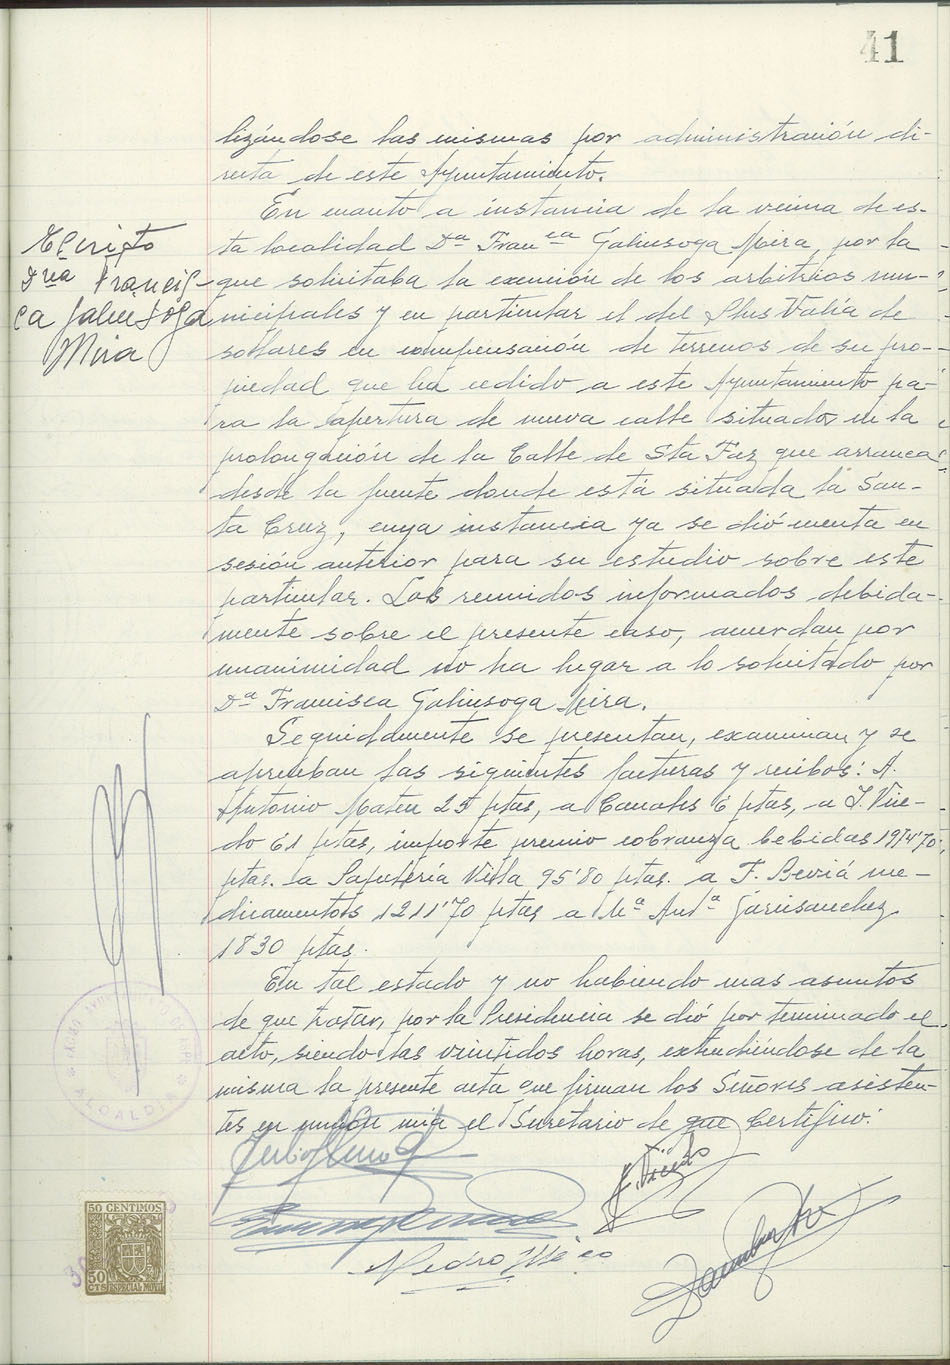 41
lizándose las mismas por administración di-
recta de este Ayuntamiento.
En cuanto a instancia de la vecina de es-
ta localidad Dª Franᶜᵃ Galiusoga Mira, por la
que solicitaba la exención de los arbitrios mu-
nicipales y en particular el del Plus Valía de
sollares en compensación de terrenos de su pro-
piedad que ha cedido a este Ayuntamiento pa-
ra la apertura de nueva calle situada en la
prolongación de la Calle de Sta Faz que arranca
desde la fuente donde está situada la San-
ta Cruz, cuya instancia ya se dió cuenta en
sesión anterior para su estudio sobre este
particular. Los reunidos informados debida-
mente sobre el presente caso, acuerdan por
unanimidad no ha lugar a lo solicitado por
Dª Francisca Galiusoga Mira.
Seguidamente se presentan, examinan y se
aprueban las siguientes facturas y recibos: A.
Antonio Mateu 25 ptas, a Canales 6 ptas, a J. Vice-
do 61 ptas, importe premio cobranza bebidas 1974'70
ptas. a Papelería Villa 95'80 ptas. a F. Beviá me-
dicamentos 1211'70 ptas a Mª Andª Garcisanchez
1830 ptas.
En tal estado y no habiendo mas asuntos
de que tratar, por la Presidencia se dió por terminado el
acto, siendo las veintidos horas, extendiéndose de la
misma la presente acta que firman los Señores asisten-
tes en unión mia el Secretario de que Certifico:
Escrito
Dña Francis-
ca Galiusoga
Mira
ALCALDIA
J. Vicedo
Pedro Mico
50 CENTIMOS
50
CTS
ESPECIAL MOVIL